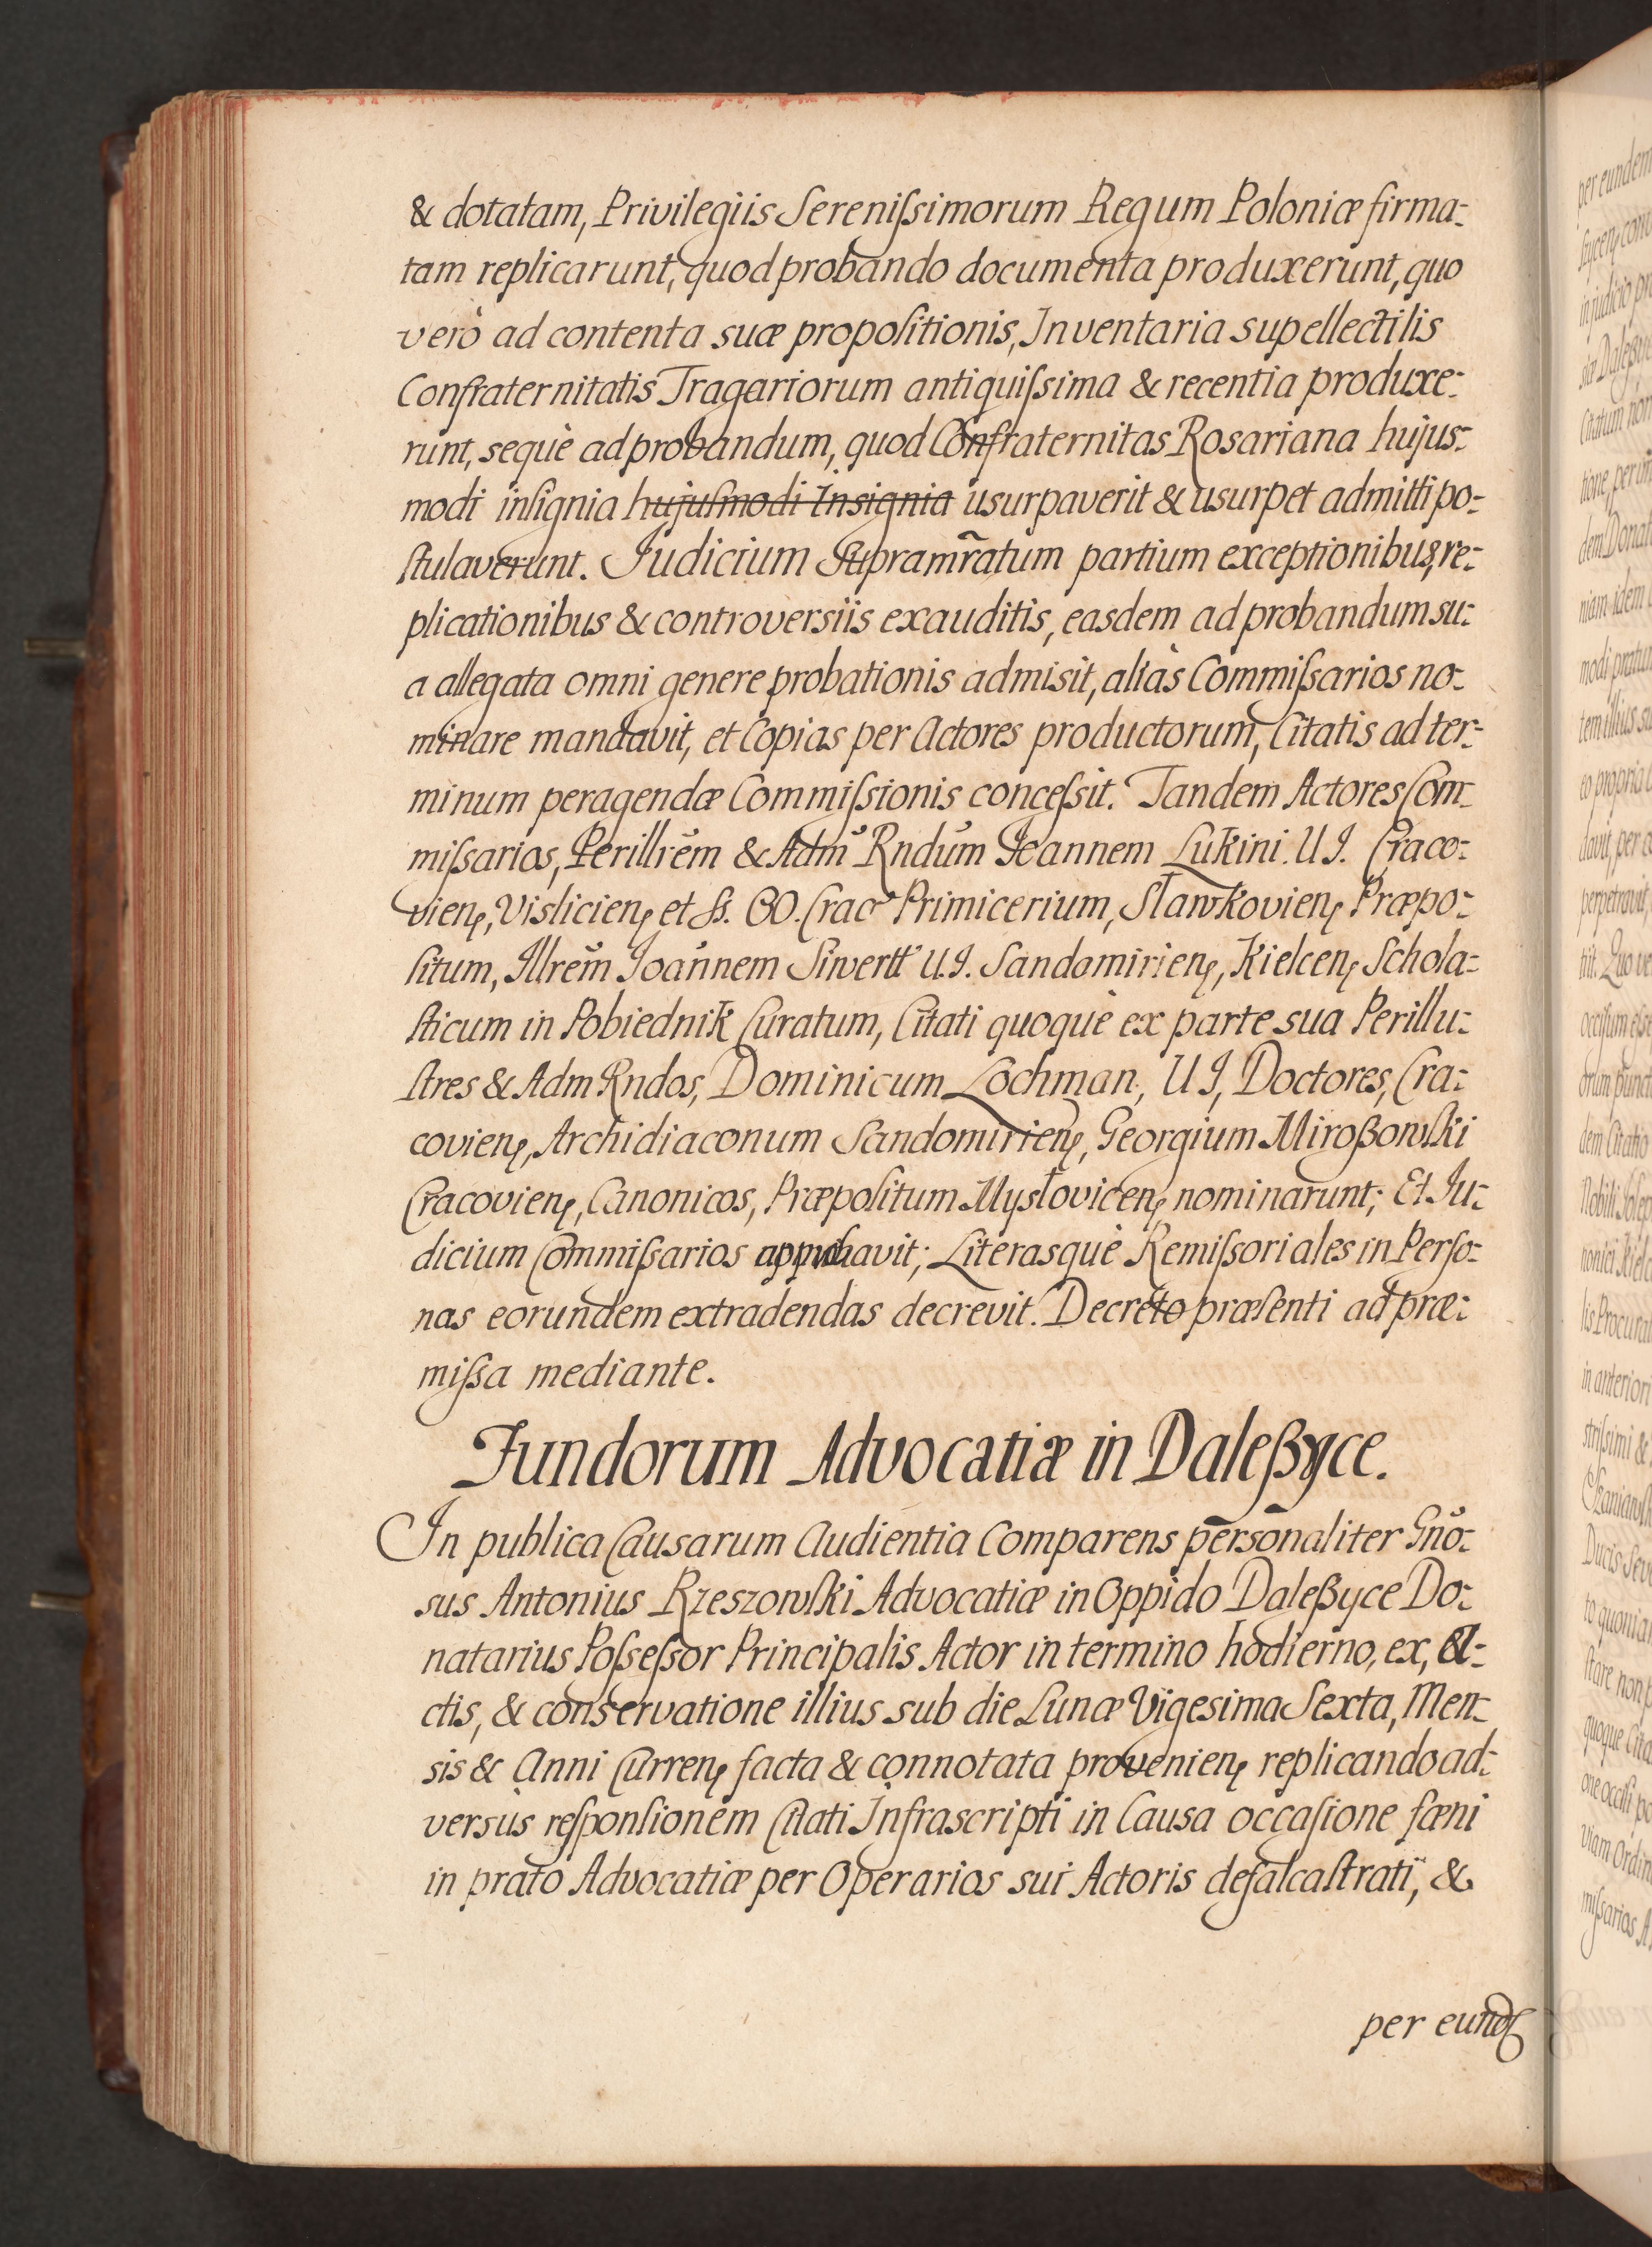 & dotatam, Privilegiis Sereniſsimorum Regum Poloniæ firma:
tam replicarunt, quod probando documenta produxerunt, quo
verò ad contenta suæ propoſitionis, Inventaria supellectilis
Confraternitatis Tragariorum antiquiſsima & recentia produxe:
runt, sequè ad probandum, quod Confraternitas Rosariana hujus:
modi inſignia hujuſmodi Insignia usurpaverit & usurpet admitti po:
ſtulaverunt. Judicium Supramr̃atum partium exceptionibus, re:
plicationibus & controversiis exauditis, easdem ad probandum su:
a allegata omni genere probationis admisit, aliàs Commiſsarios no:
minare mandavit, et Copias per Actores productorum, Citatis ad ter:
minum peragendæ Commiſsionis conceſsit. Tandem Actores Com:
miſsarios, Perillrem & Adm Rndum Ioannem Lukini. U.I. Craco:
vien, Vislicien et SS. OO. Crac Primicerium, Slawkovien Præpo:
ſitum, Illrem Joannem Siwertt U.I. Sandomirien, Kielcen Schola:
ſticum in Pobiednik Curatum, Citati quoquè ex parte sua Perillu:
ſtres & Adm Rndos, Dominicum Lochman, U I, Doctores, Cra:
covien, Archidiaconum Sandomirien, Georgium Miroßowſki
Cracovien, Canonicos, Præpoſitum Mysłovicen nominarunt; Et Ju:
dicium Commiſsarios approbavit; Literasquè Remiſsoriales in Perſo:
nas eorundem extradendas decrevit. Decreto præſenti ad præ:
miſsa mediante.
Fundorum Advocatiæ in Daleßyce.
In publica Causarum Audientia Comparens personaliter Gño:
sus Antonius Rzeszowſki Advocatiæ in Oppido Daleßyce Do:
natarius Poſseſsor Principalis Actor in termino hodierno, ex, A:
ctis, & conservatione illius sub die Lunæ Vigesima Sexta, Men:
sis & Anni Curren facta & connotata provenien replicando ad:
versùs reſponſionem Citati Infrascripti in Causa occaſione fæni
in prato Advocatiæ per Operarios sui Actoris defalcaſtrati, &
per eund